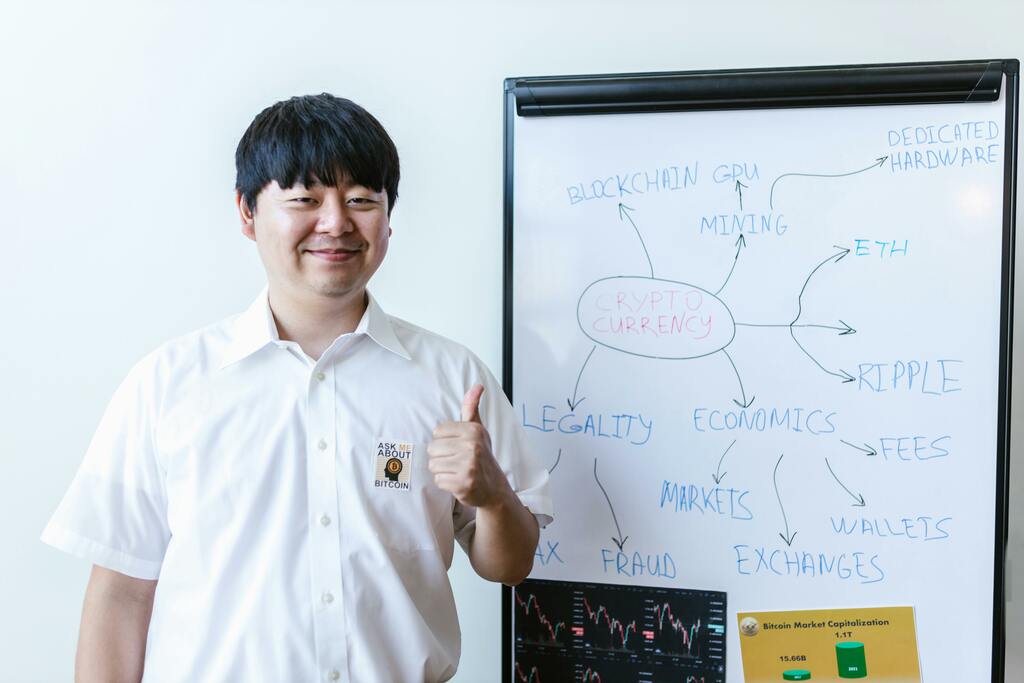 DEDICATED
HARDWARE
BLOCKCHAIN
GPU
MINING
ETH
CRYPTO
CURRENCY
RIPPLE
LEGALITY
ECONOMICS
FEES
MARKETS
WALLETS
AX
FRAUD
EXCHANGES
ASK ME
ABOUT
BITCOIN
Bitcoin Market Capitalization
1.1T
15.66B
2017
2021